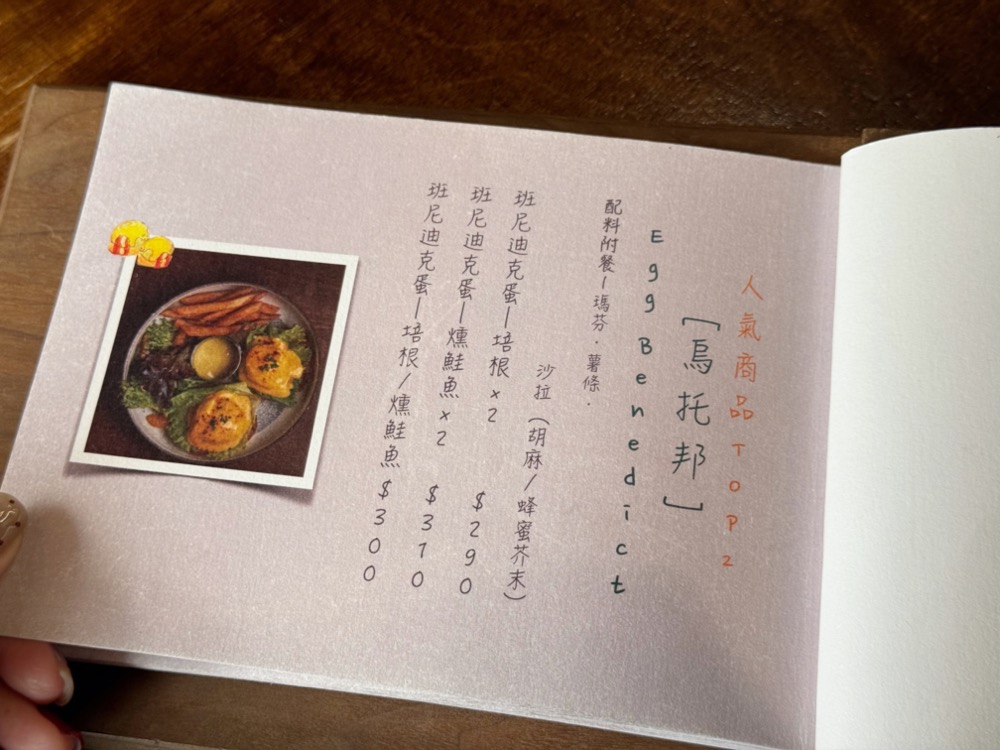 人氣商品TOP2
「烏托邦」
Egg Benedict
配料附餐—瑪芬.薯條.
沙拉（胡麻/蜂蜜芥末）
班尼迪克蛋—培根x2 $290
班尼迪克蛋—燻鮭魚x2 $310
班尼迪克蛋—培根/燻鮭魚 $300